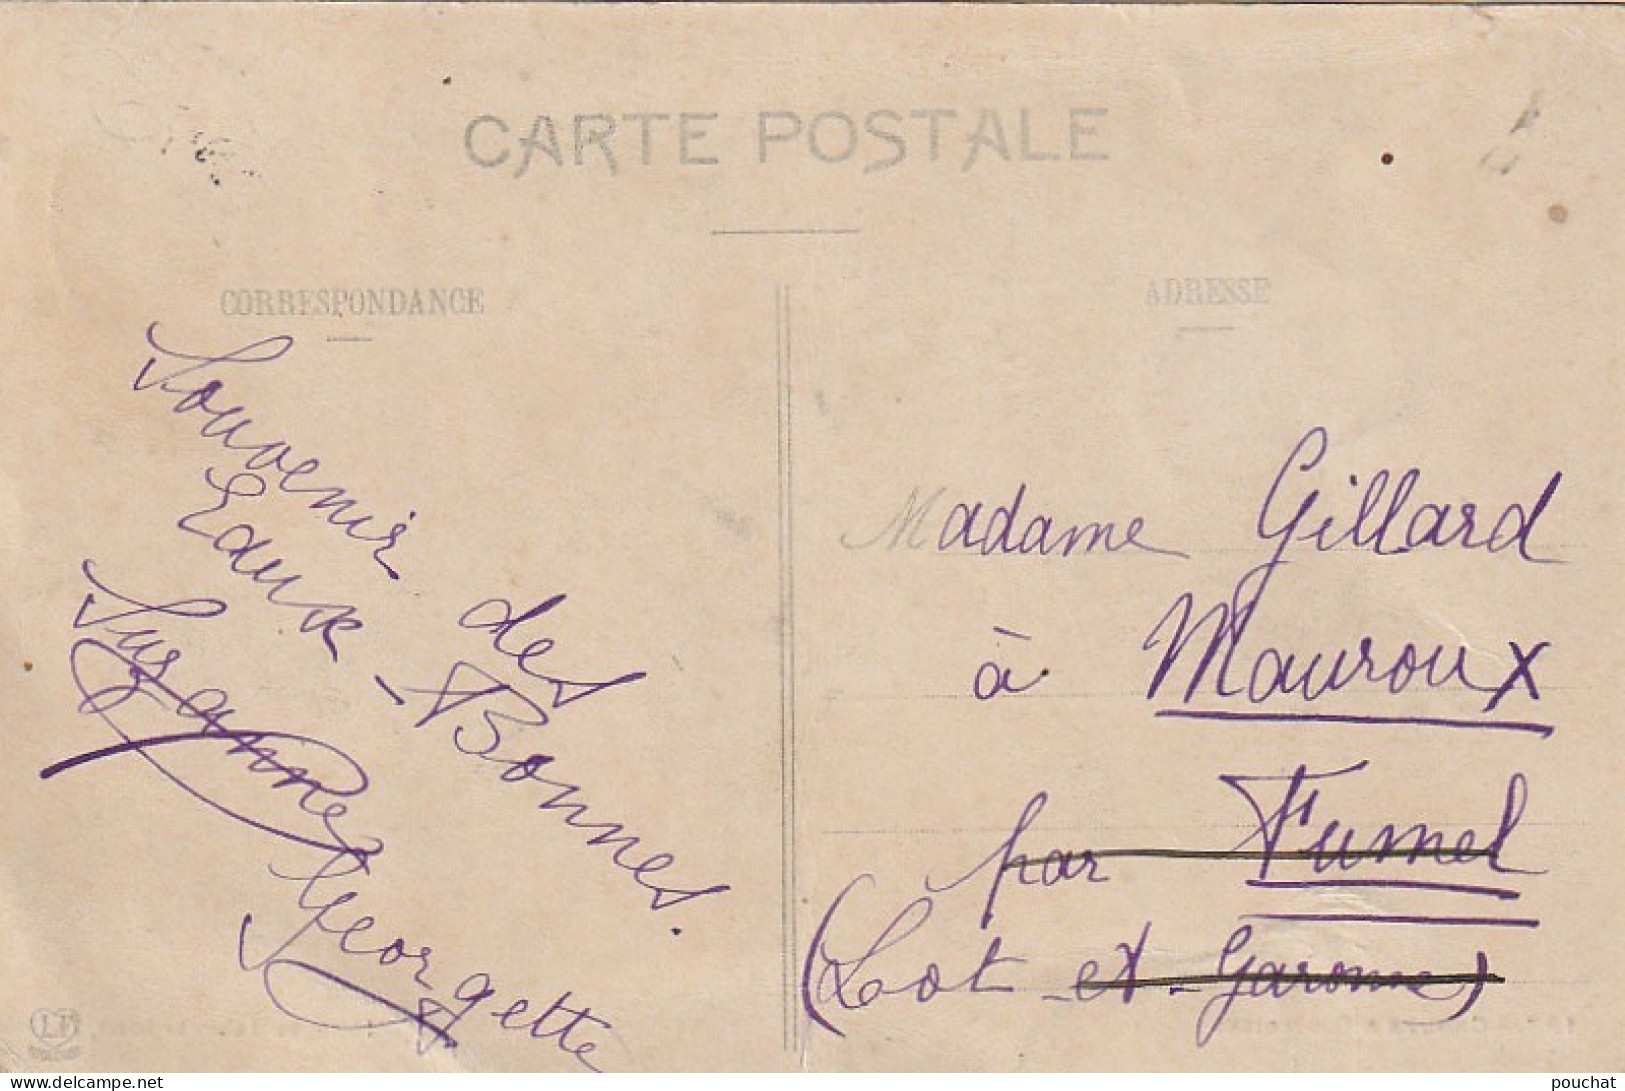 CARTE POSTALE
CORRESPONDANCE
ADRESSE
Souvenir des
Eaux-Bonnes.
Suzanne
Georgette
Madame Gillard
à Mauroux
par Fumel
(Lot-et-Garonne)
LF
www.delcampe.net
pouchat